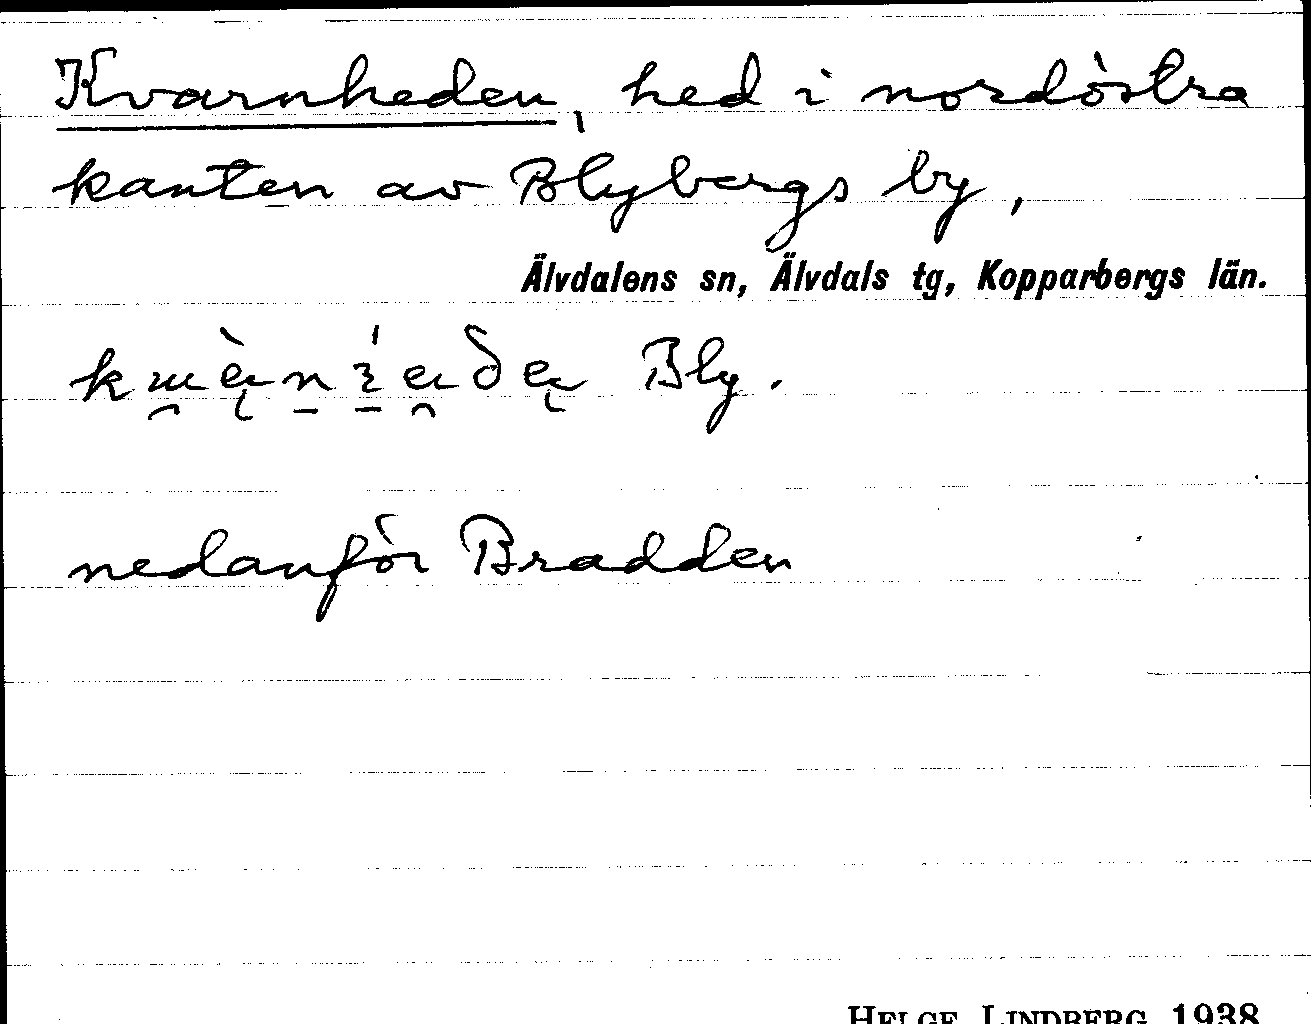 Kvarnheden, hed i nordöstra
kanten av Blybergs by,
Älvdalens sn, Älvdals tg, Kopparbergs län.
Bly.
nedanför Bradden
HELGE LINDBERG 1938